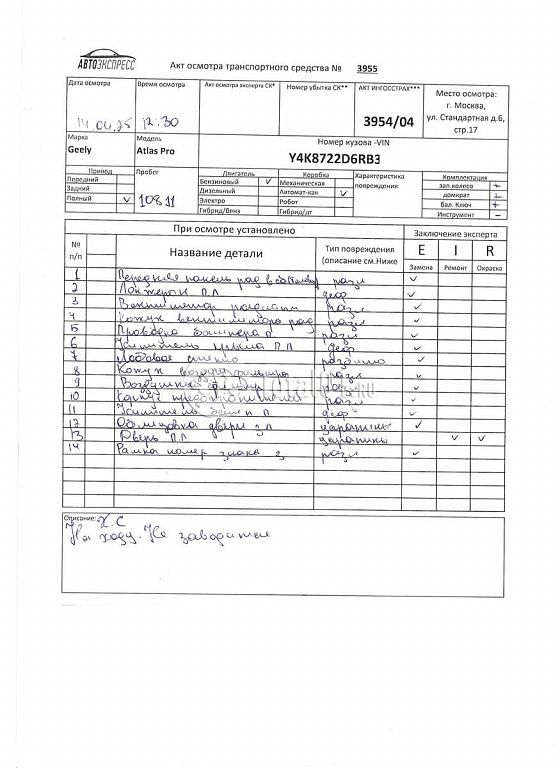 АВТОЭКСПРЕСС
Акт осмотра транспортного средства № 3955
Дата осмотра Время осмотра Акт осмотра эксперта СК* Номер убытка СК** АКТ ИНГОССТРАХ*** Место осмотра:
г. Москва,
14.04.25 12:30 3954/04 ул. Стандартная д.6,
стр.17
Марка Модель Номер кузова -VIN
Geely Atlas Pro Y4K8722D6RB3
Привод Пробег Двигатель Коробка Характеристика повреждения Комплектация
Передний Бензиновый ✓ Механическая зап.колесо +
Задний Дизельный Автомат-кая ✓ домкрат +
Полный ✓ 10811 Электро Робот бал. Ключ +
Гибрид/бенз Гибрид/дт Инструмент –
При осмотре установлено Заключение эксперта
№ п/п Название детали Тип повреждения (описание см.Ниже E I R
Замена Ремонт Окраска
1 Передняя панель рад в сб разл ✓
2 Лонжерон П Л деф ✓
3 Вентилятор радиат разл ✓
4 Кожух вентилятора рад разл ✓
5 Проводка бампера П разл ✓
6 Усилитель крыла П Л деф ✓
7 Лобовое стекло разбито ✓
8 Кожух воздуш фильтра разл ✓
9 Воздушный фильтр разл ✓
10 Корпус предохранителей разл ✓
11 Усилитель П Л деф ✓
12 Облицовка двери з л царапины ✓
13 Дверь П Л царапины ✓ ✓
14 Рамка номер знака з разл ✓
Описание: Х.С
На ходу. Не заводится